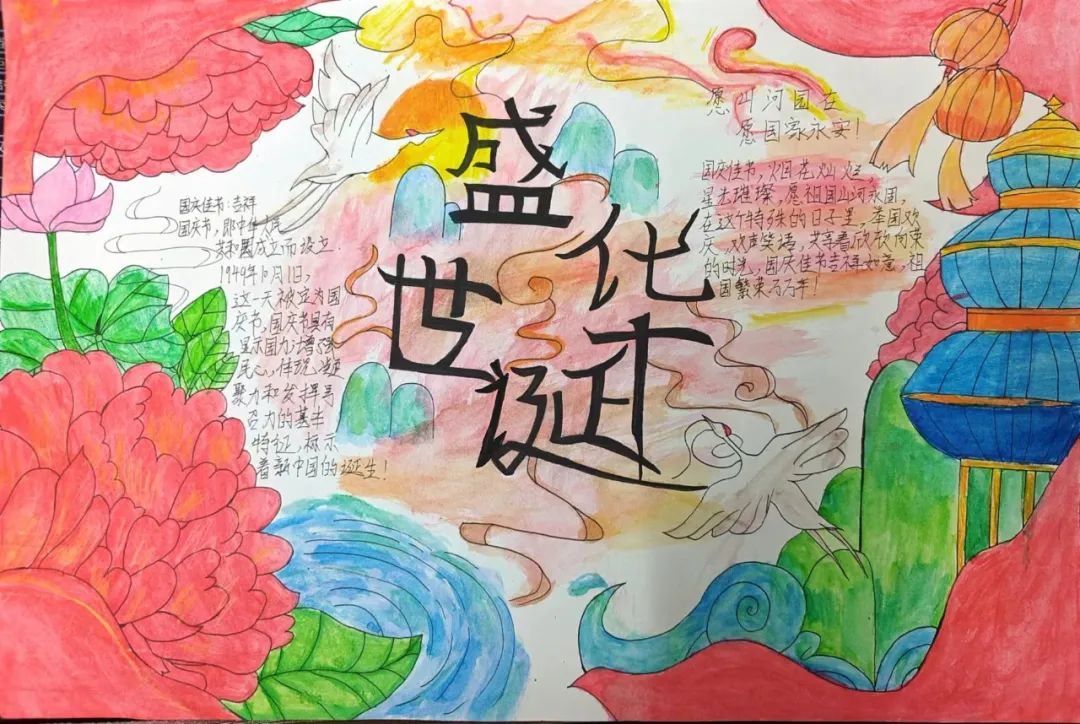 盛世华诞
愿山河国在
愿国家永安!
国庆佳节,烟花灿烂
星光璀璨,愿祖国山河永固,
在这个特殊的日子里,举国欢
庆,欢声笑语,共享着欣欣向荣
的时光,国庆佳节吉祥如意,祖
国繁荣万万年!
国庆佳节:吉祥
国庆节,即中华人民
共和国成立而设立
1949年10月1日,
这一天被定为国
庆节,国庆节具有
显示国力,增强
民心,体现凝
聚力和发挥号
召力的基本
特征,标示
着新中国的诞生!